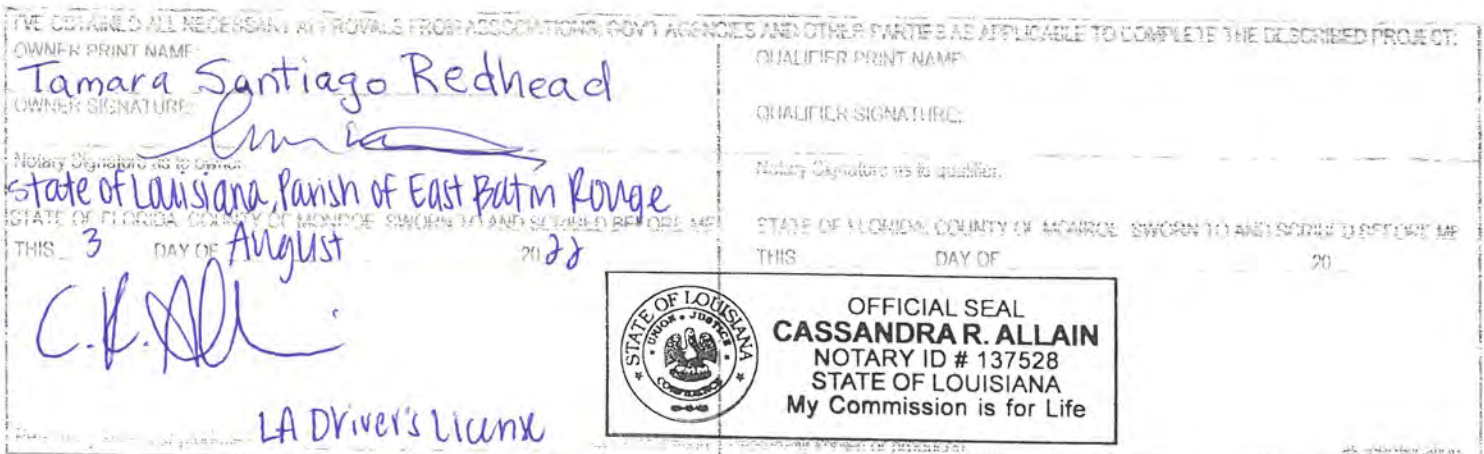 I'VE OBTAINED ALL NECESSARY APPROVALS FROM ASSOCIATIONS, GOV'T AGENCIES AND OTHER PARTIES AS APPLICABLE TO COMPLETE THE DESCRIBED PROJECT:
OWNER PRINT NAME:
Tamara Santiago Redhead
OWNER SIGNATURE:
Notary Signature as to owner:
State of Louisiana, Parish of East Baton Rouge
STATE OF FLORIDA, COUNTY OF MONROE, SWORN TO AND SCRIBED BEFORE ME
THIS 3 DAY OF August 2022
C.R. All
LA Driver's License
QUALIFIER PRINT NAME:
QUALIFIER SIGNATURE:
Notary Signature as to qualifier:
STATE OF FLORIDA, COUNTY OF MONROE, SWORN TO AND SCRIBED BEFORE ME
THIS DAY OF 20
STATE OF LOUISIANA
UNION JUSTICE
CONFIDENCE
OFFICIAL SEAL
CASSANDRA R. ALLAIN
NOTARY ID # 137528
STATE OF LOUISIANA
My Commission is for Life